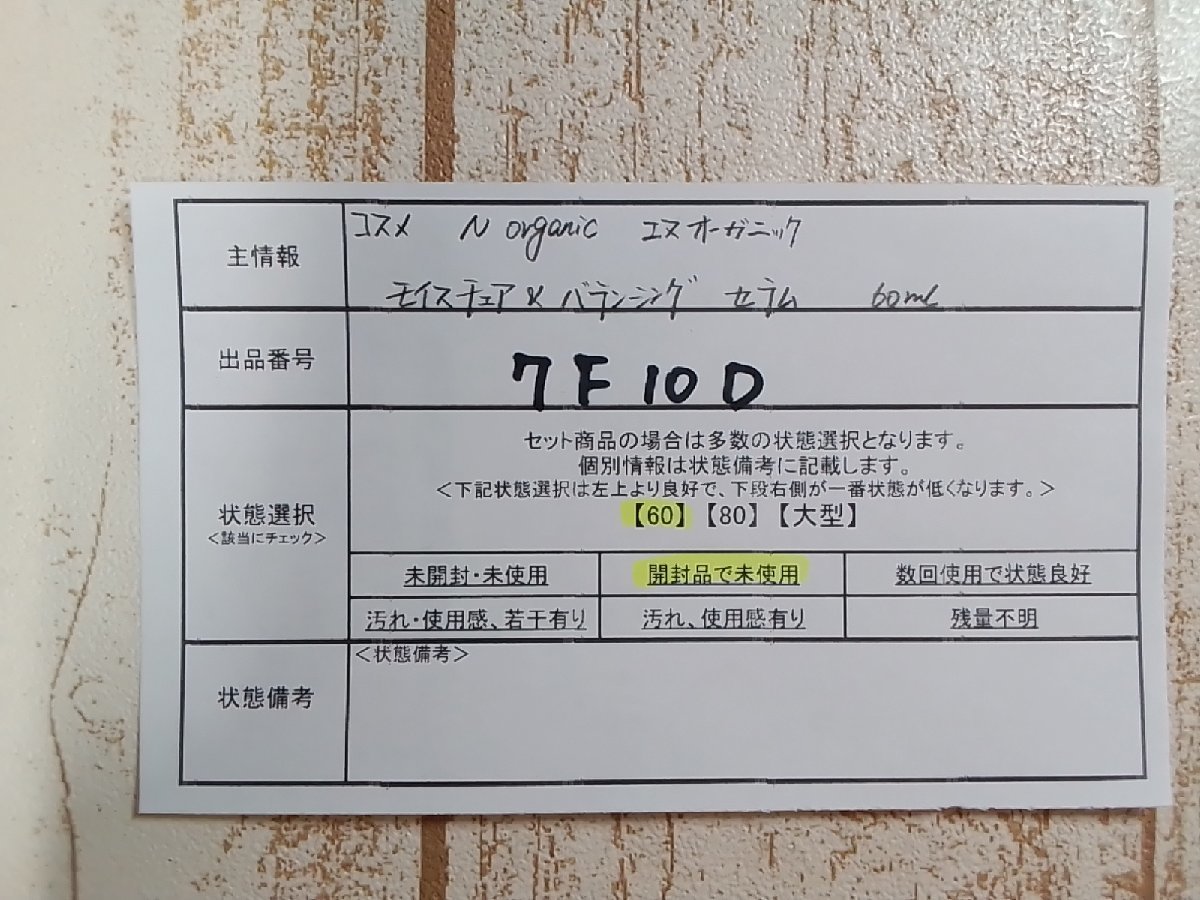 主情報
コスメ N organic エヌオーガニック
モイスチュア&バランシング セラム 60ml
出品番号
7F10D
状態選択
<該当にチェック>
セット商品の場合は多数の状態選択となります。
個別情報は状態備考に記載します。
<下記状態選択は左上より良好で、下段右側が一番状態が低くなります。>
【60】【80】【大型】
未開封・未使用 開封品で未使用 数回使用で状態良好
汚れ・使用感、若干有り 汚れ、使用感有り 残量不明
状態備考
<状態備考>